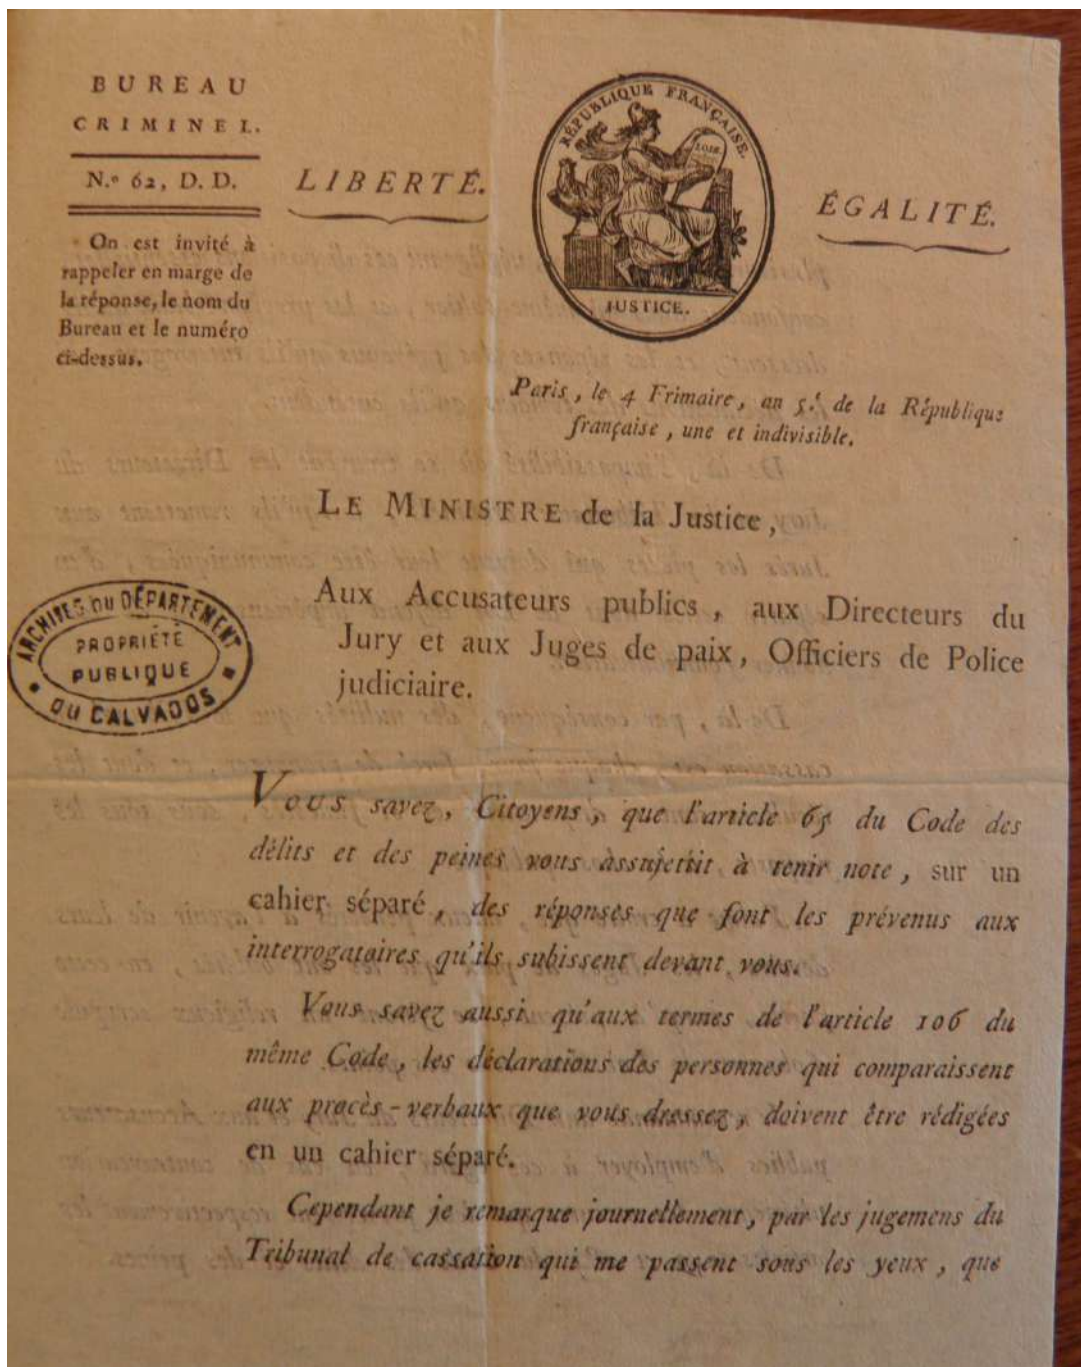 BUREAU
CRIMINEL.
N.º 62, D. D.
On est invité à
rappeler en marge de
la réponse, le nom du
Bureau et le numéro
ci-dessus.
LIBERTÉ.
RÉPUBLIQUE FRANÇAISE.
LOIS.
JUSTICE.
ÉGALITÉ.
Paris, le 4 Frimaire, an 5.ᵉ de la République
française, une et indivisible.
LE MINISTRE de la Justice,
Aux Accusateurs publics, aux Directeurs du
Jury et aux Juges de paix, Officiers de Police
judiciaire.
ARCHIVES DU DÉPARTEMENT
PROPRIÉTÉ
PUBLIQUE
DU CALVADOS
Vous savez, Citoyens, que l'article 65 du Code des
délits et des peines vous assujettit à tenir note, sur un
cahier séparé, des réponses que font les prévenus aux
interrogatoires qu'ils subissent devant vous.
Vous savez aussi qu'aux termes de l'article 106 du
même Code, les déclarations des personnes qui comparaissent
aux procès-verbaux que vous dressez, doivent être rédigées
en un cahier séparé.
Cependant je remarque journellement, par les jugemens du
Tribunal de cassation qui me passent sous les yeux, que